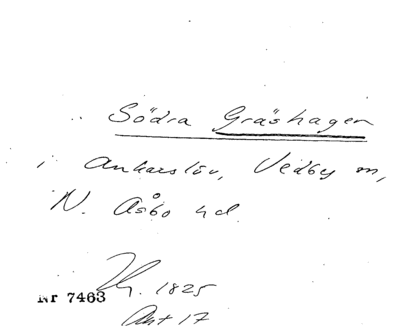 Södra Gräshagen
i Ankarslöv, Vedby sn,
N. Åsbo hd.
1825
Nr 7463
Akt 17